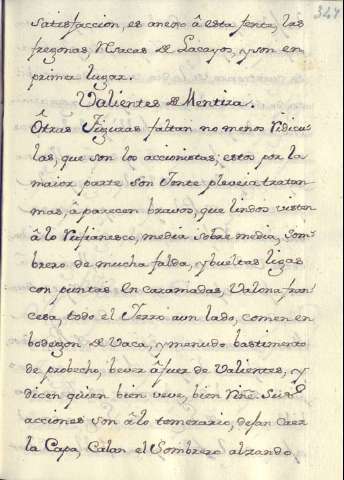 347
satisfaccion, es anexo â esta gente, las
fregonas Vacas de Lacayos, y son en
primer lugar.
Valientes de Mentira.
Ôtras Figuras faltan no menos Ridicu-
las, que son los accionistas; estos por la
maior parte son Jente pleveia tratan
mas, â parecen bravos, que lindos visten
â lo Rufianesco, media sobre media, Som-
brero de mucha falda, y bueltas ligas
con puntas Encaramadas, Valona fran-
cesa, todo el Jerro aun lado, comen en
bodegon de Vaca, y menudo bastimento
de probecho, bever â fuer de Valientes, y
dicen quien bien veve, bien Riñe. Sus
acciones son âlo temerario, dejan caer
la Capa, Calan el Sombrero alzando